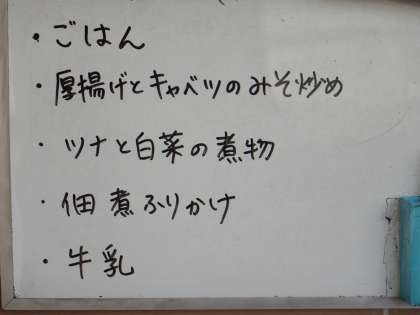 ・ごはん
・厚揚げとキャベツのみそ炒め
・ツナと白菜の煮物
・佃煮ふりかけ
・牛乳